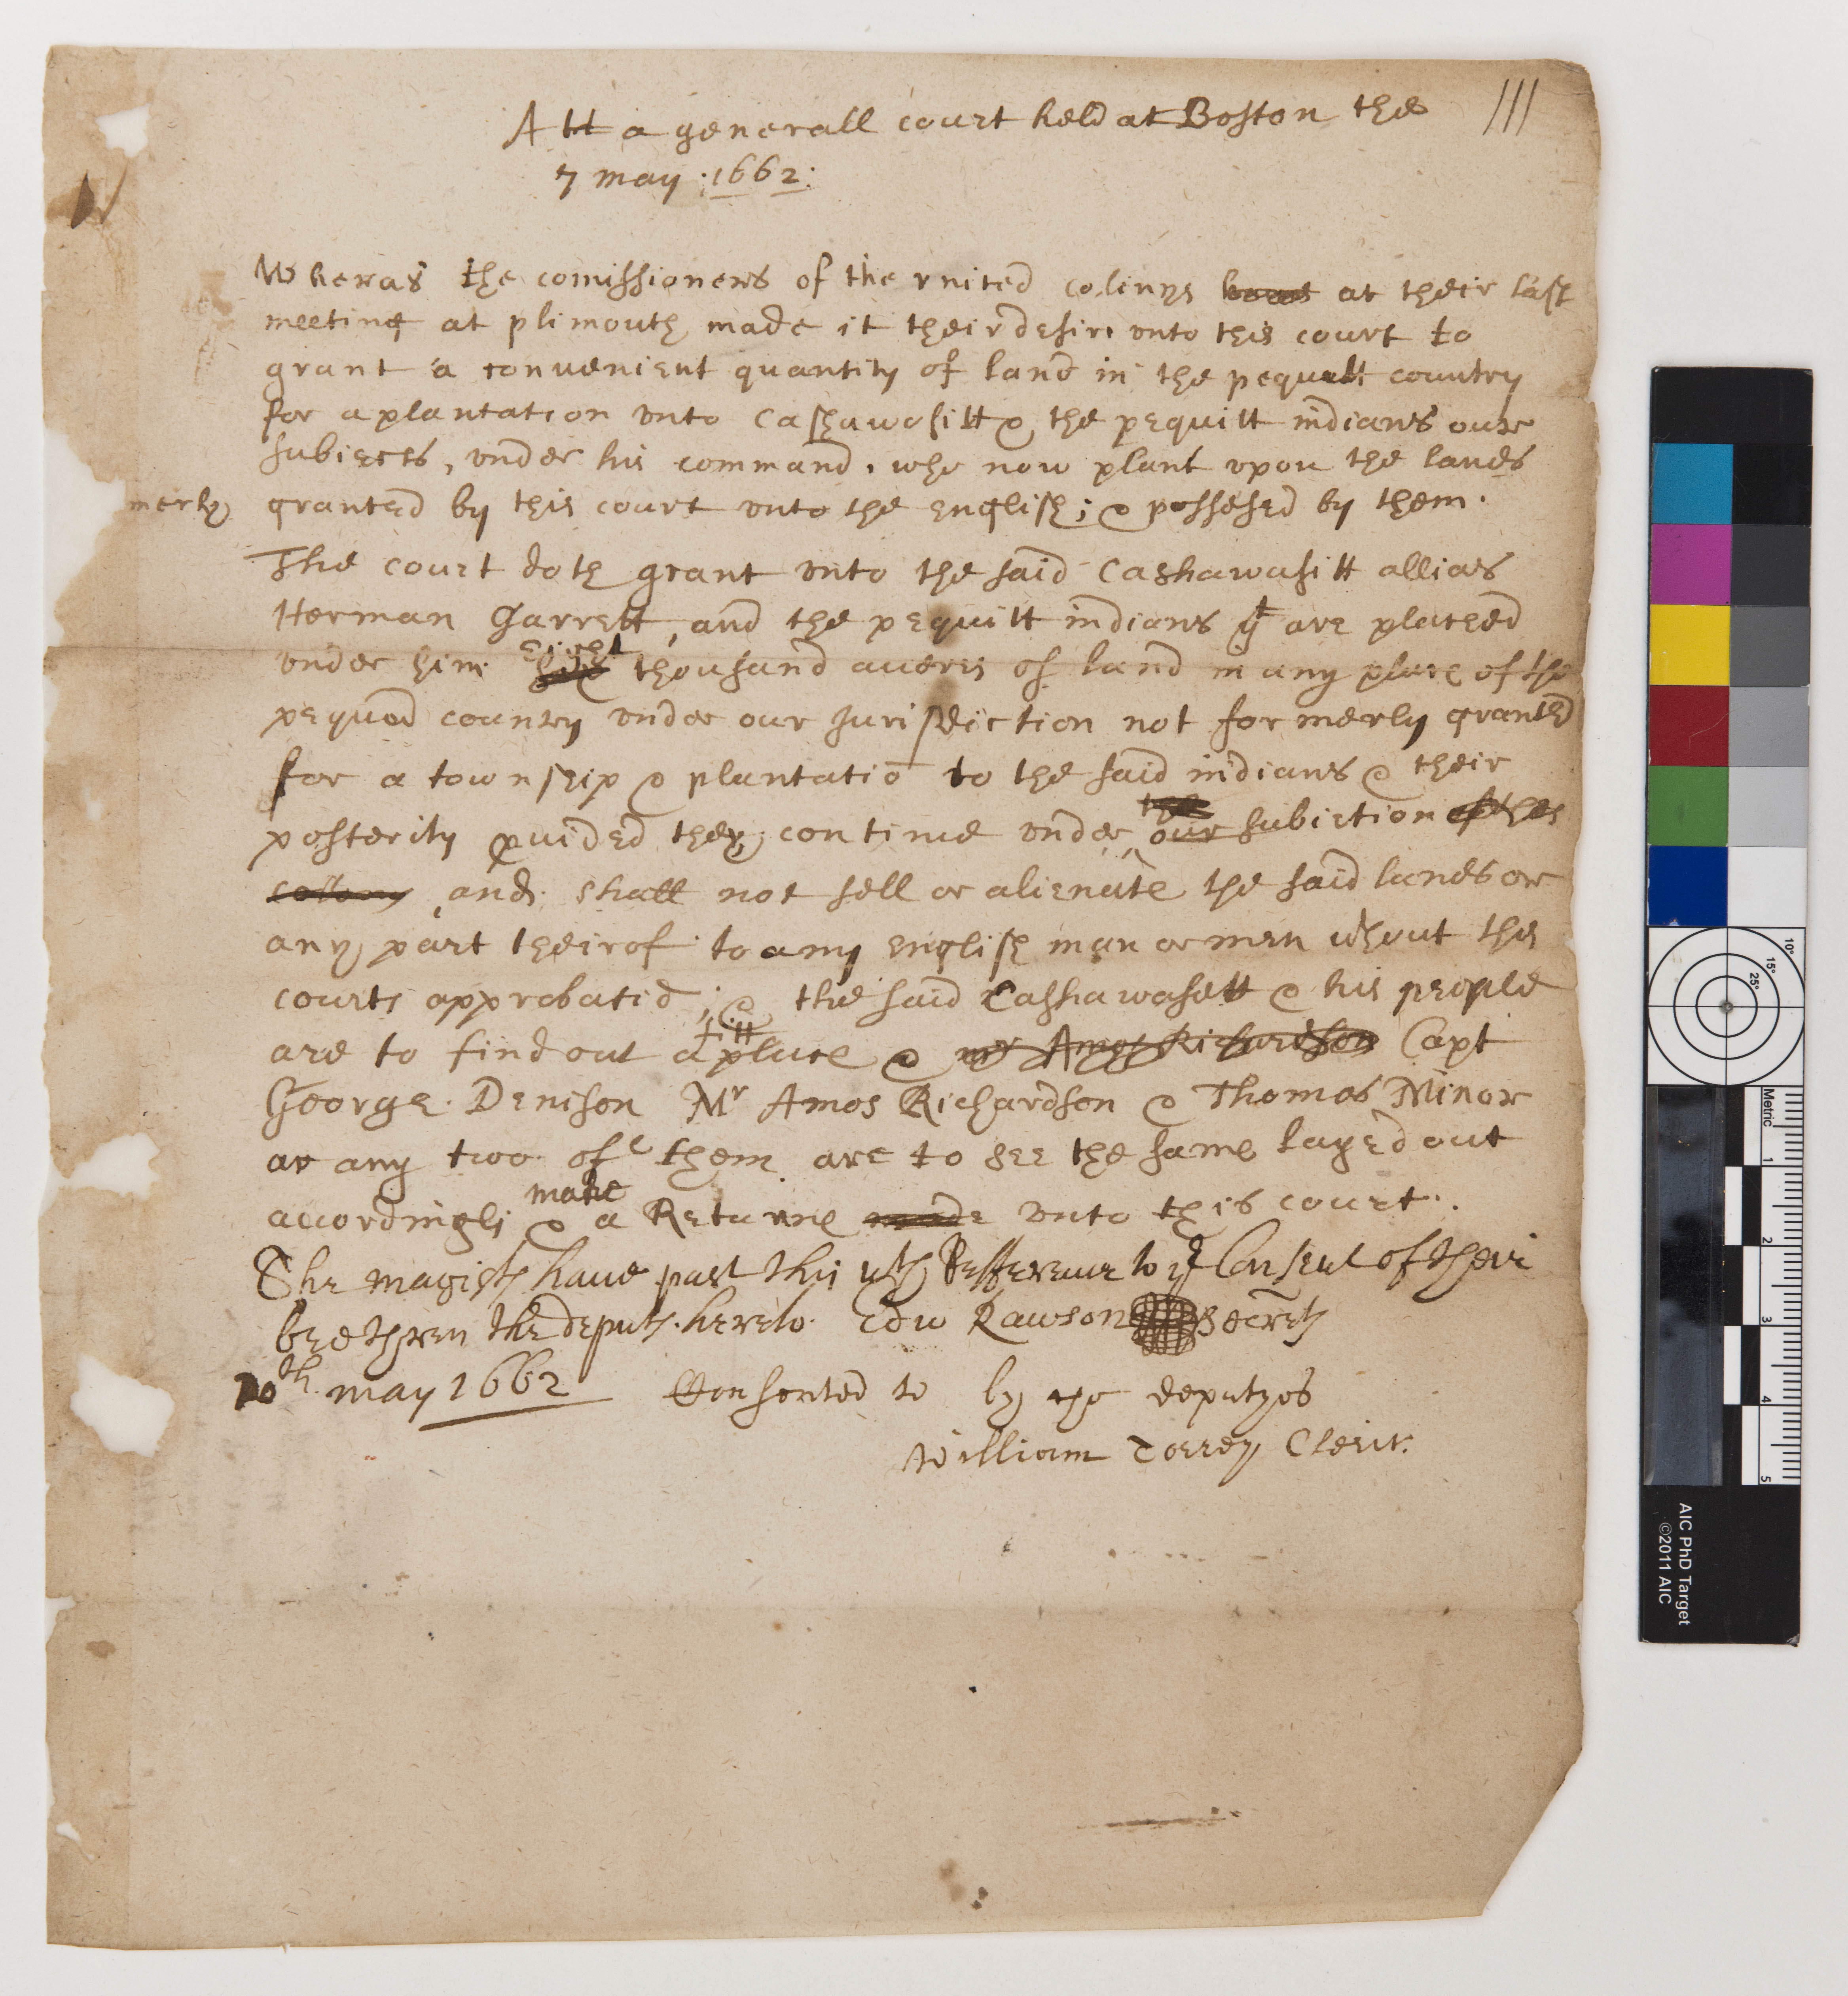 Att a generall court held at Boston the 111
7 may :1662:
Wheras the comissioners of the vnited colinys at their last
meeting at plimouth made it their desire vnto this court to
grant a convenient quantity of land in the pequitt country
for a plantation vnto Cashawasitt & the pequitt indians our
subiects, vnder his command, who now plant vpon the lands
merly granted by this court vnto the english; & possesed by them.
The court doth grant vnto the said Cashawasitt allias
Herman Garrett, and the pequitt indians yt are placed
vnder him eight thousand accres of land in any place of the
pequod country vnder our Jurisdiction not formerly granted
for a township & plantatiō to the said indians & their
posterity pvided they continue vnder the our subiection of the
collony and shall not sell or alienate the said lands or
any part theirof to any english man or men wthout the
courts approbatiō; & the said Cashawasett & his people
are to find out a fitt place & mr Amos Richardson Capt
George Denison Mr Amos Richardson & Thomas Minor
or any two of them are to see the same layed out
accordingli & make a Returne made vnto this court.
The magists have past this wth Refference to ye Consent of their
bretheren the deputs hereto Edw Rawson Secrety
10th may 1662 Consented to by the deputyes
William Torrey Cleric.
AIC PhD Target
©2011 AIC
Metric
1
2
3
4
5
10°
15°
25°